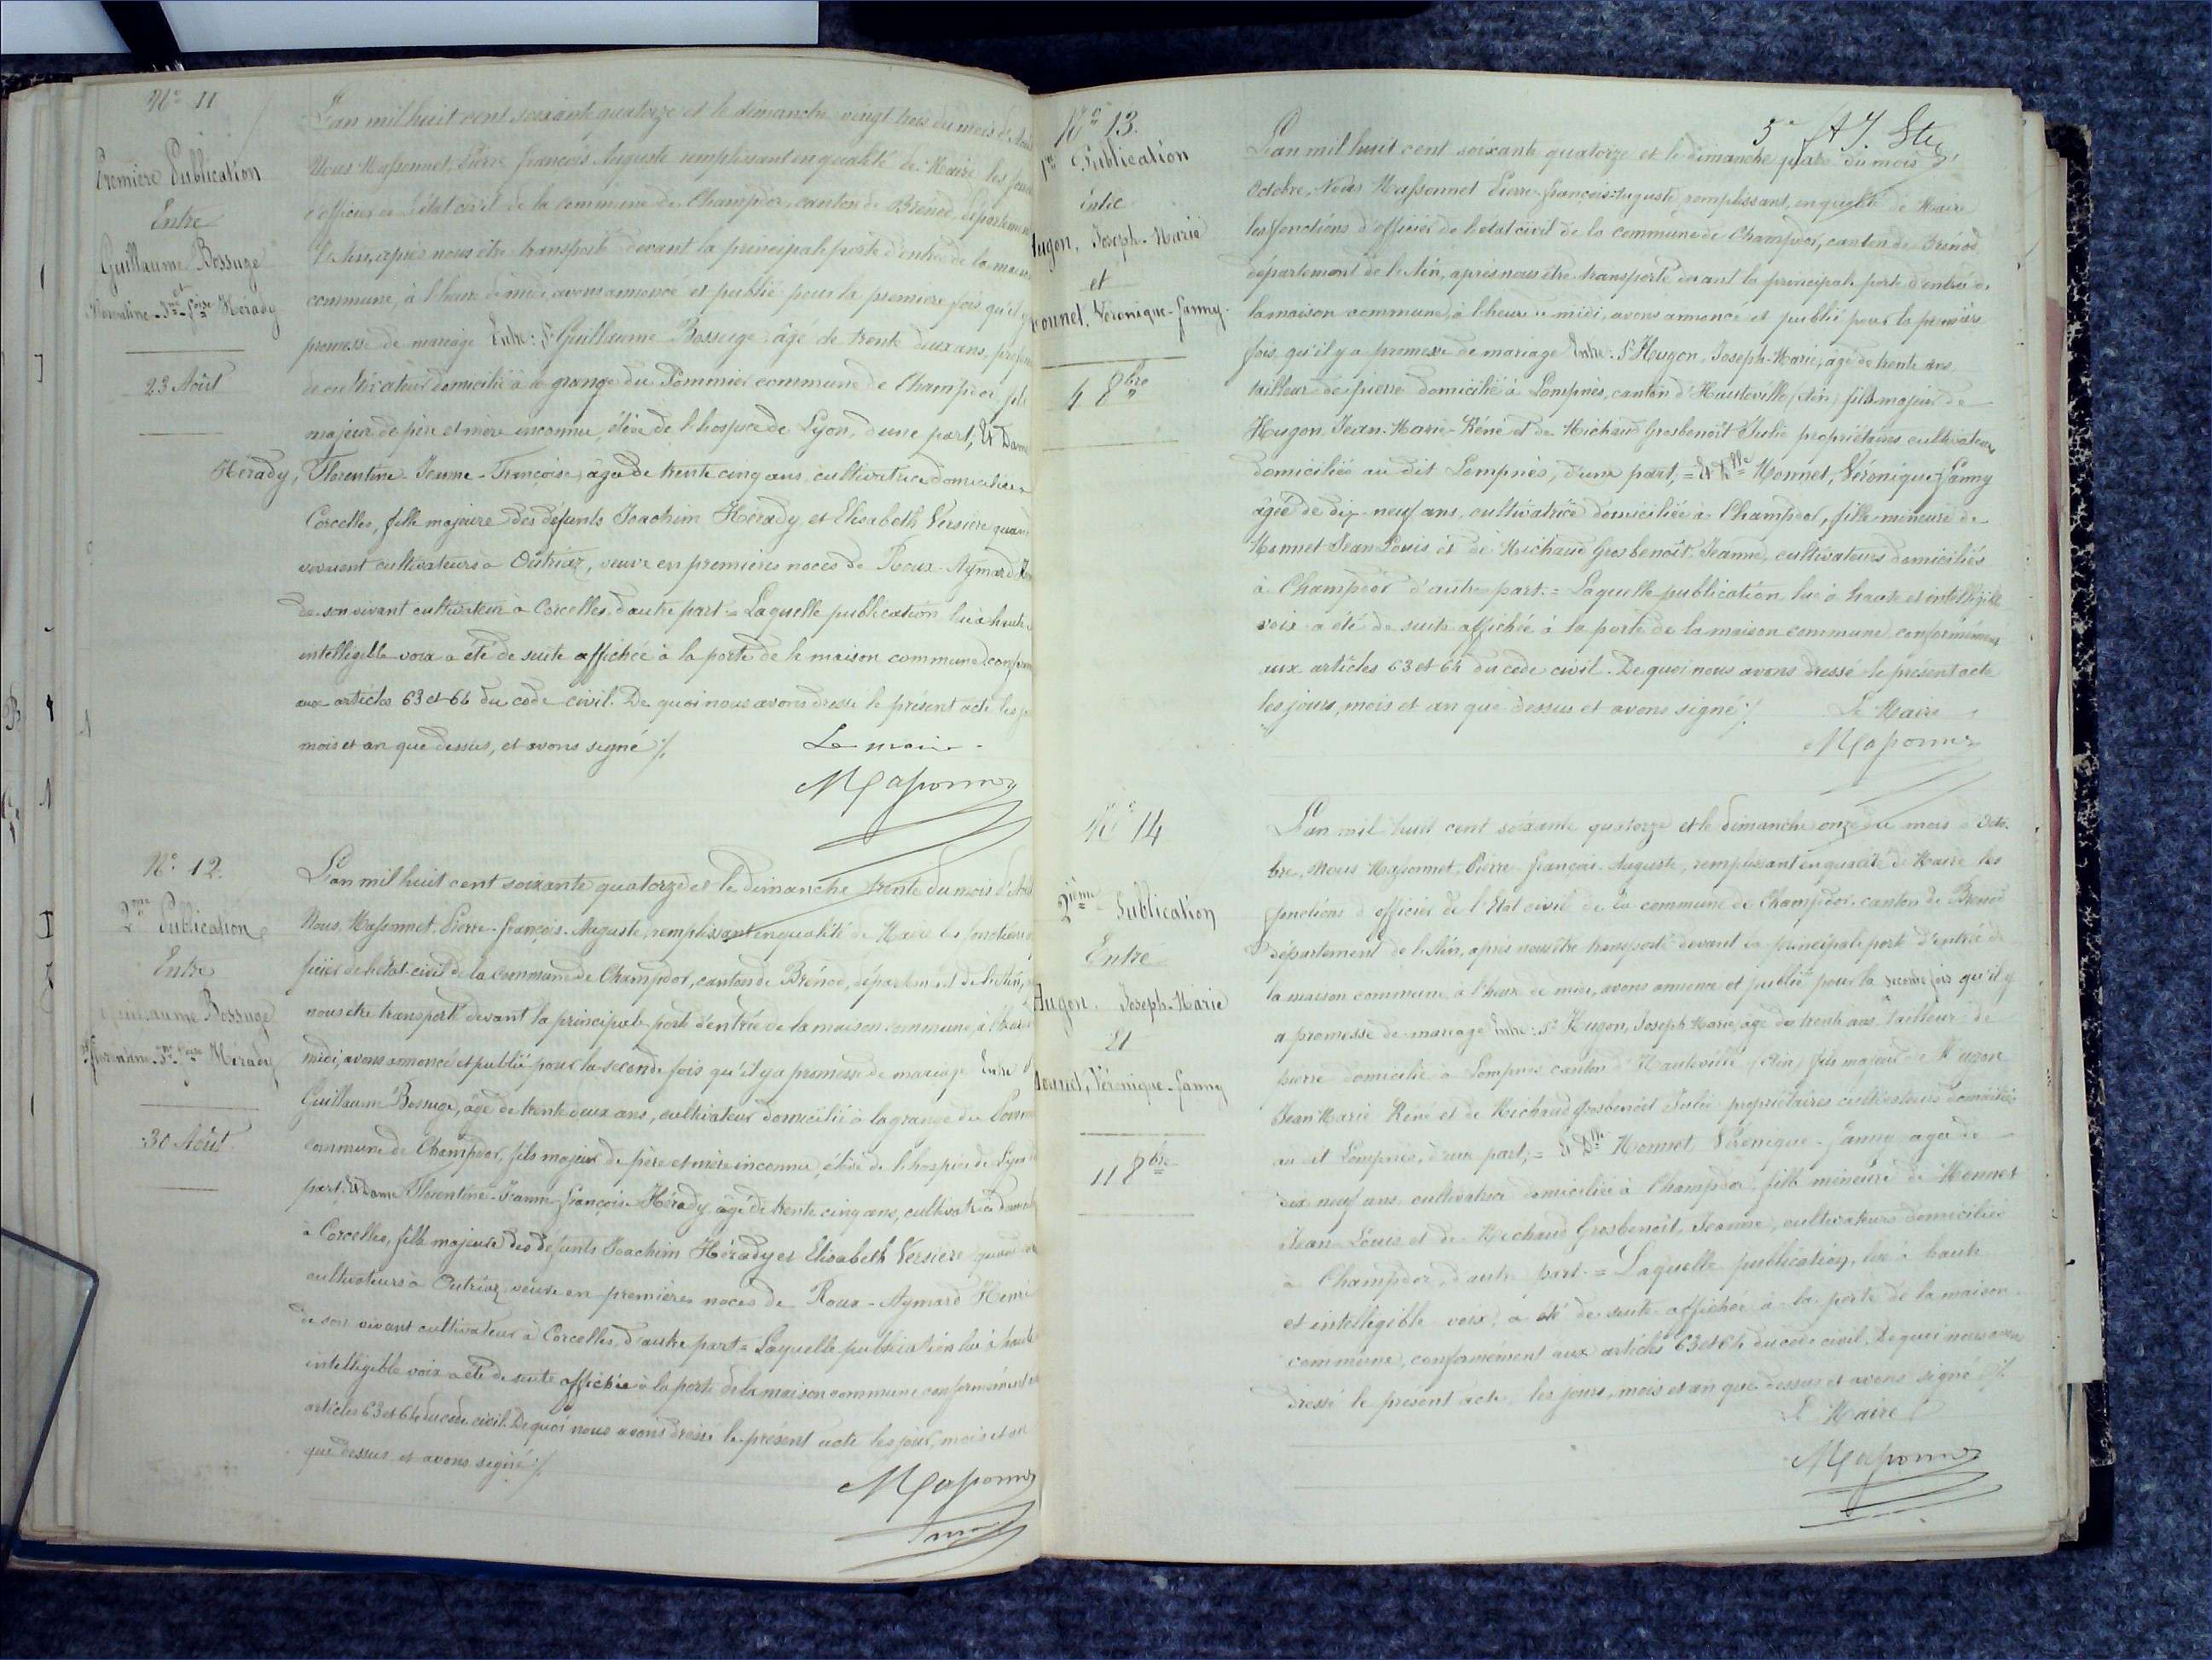 N° 11
Première Publication
Entre
Guillaume Bossuge
et
Florentine-Jne-Fçoise Hérady
23 Août
L'an mil huit cent soixante quatorze et le dimanche vingt trois du mois d'Août
Nous Massonnet, Pierre François Auguste remplissant en qualité de Maire les
d'officier de l'état civil de la commune de Champdor, canton de Brénod, département
l'Ain, après nous être transporté devant la principale porte d'entrée de la maison
commune, à l'heure de midi, avons annoncé et publié pour la première fois qu'il y
promesse de mariage Entre: Sr Guillaume Bossuge âgé de trente deux ans,
de cultivateur domicilié à la grange du Pommier commune de Champdor, fils
majeur de père et mère inconnu, élève de l'hospice de Lyon, d'une part; Et Dame
Hérady, Florentine-Jeanne-Françoise, âgée de trente cinq ans, cultivatrice domiciliée à
Corcelles, fille majeure des défunts Joachim Hérady et Elisabeth Versière quand
vivaient cultivateurs à Outriaz, veuve en premières noces de Roux-Aymard
de son vivant cultivateur à Corcelles, d'autre part = Laquelle publication lue à haute
intelligible voix a été de suite affichée à la porte de la maison commune
aux articles 63 et 64 du code civil. De quoi nous avons dressé le présent acte les
mois et an que dessus, et avons signé ./.
Le maire
Massonnet
N° 12.
2me Publication
Entre
Guillaume Bossuge
et Florentine-Jne-Fçoise Hérady
30 Août
L'an mil huit cent soixante quatorze et le dimanche trente du mois d'Août
Nous, Massonnet, Pierre-François-Auguste, remplissant en qualité de Maire les fonctions
ficier de l'état-civil de la commune de Champdor, canton de Brénod, département de l'Ain,
nous être transporté devant la principale porte d'entrée de la maison commune, à l'heure
midi, avons annoncé et publié pour la seconde fois qu'il y a promesse de mariage Entre
Guillaume Bossuge, âgé de trente deux ans, cultivateur domicilié à la grange du
commune de Champdor, fils majeur de père et mère inconnu, élève de l'hospice de Lyon
part; Et Dame Florentine-Jeanne-Françoise Hérady âgée de trente cinq ans, cultivatrice
à Corcelles, fille majeure des défunts Joachim Hérady et Elisabeth Versière quand
cultivateurs à Outriaz, veuve en premières noces de Roux-Aymard Henri
de son vivant cultivateur à Corcelles, d'autre part = Laquelle publication lue à haute
intelligible voix a été de suite affichée à la porte de la maison commune conformément
articles 63 et 64 du code civil. De quoi nous avons dressé le présent acte les jour, mois et an
que dessus et avons signé ./.
Massonnet
N° 13.
1re Publication
Entre
Hugon, Joseph-Marie
et
Monnet, Véronique-Fanny
4 8bre
L'an mil huit cent soixante quatorze et le dimanche quatre du mois d'
Octobre, Nous Massonnet Pierre-François-Auguste, remplissant, en qualité de Maire
les fonctions d'officier de l'état civil de la commune de Champdor, canton de Brénod
département de l'Ain, après nous être transporté devant la principale porte d'entrée de
la maison commune, à l'heure de midi, avons annoncé et publié pour la première
fois, qu'il y a promesse de mariage Entre: Sr Hugon, Joseph-Marie, âgé de trente ans
tailleur de pierre domicilié à Lompnès, canton d'Hauteville (Ain) fils majeur de
Hugon, Jean-Marie-Réné et de Michaud Grosbenoît Julie propriétaires cultivateurs
domiciliés au dit Lompnès, d'une part; = Et Dlle Monnet, Véronique-Fanny
âgée de dix-neuf ans, cultivatrice domiciliée à Champdor, fille mineure de
Monnet Jean Louis et de Michaud Grosbenoît Jeanne, cultivateurs domiciliés
à Champdor d'autre part. = Laquelle publication lue à haute et intelligible
voix a été de suite affichée à la porte de la maison commune conformément
aux articles 63 et 64 du code civil. De quoi nous avons dressé le présent acte
les jours, mois et an que dessus et avons signé ./.
Le Maire
Massonnet
N° 14
2ième Publication
Entre
Hugon, Joseph-Marie
Et
Monnet, Véronique-Fanny
11 8bre
L'an mil huit cent soixante quatorze et le dimanche onze du mois d'Octo-
bre, Nous Massonnet Pierre-François-Auguste, remplissant en qualité de Maire les
fonctions d'officier de l'Etat civil de la commune de Champdor, canton de Brénod
département de l'Ain, après nous être transporté devant la principale porte d'entrée de
la maison commune, à l'heure de midi, avons annoncé et publié pour la seconde fois qu'il y
a promesse de mariage Entre: Sr Hugon, Joseph Marie, âgé de trente ans tailleur de
pierre domicilié à Lompnès canton d'Hauteville (Ain) fils majeur de Hugon
Jean Marie Réné et de Michaud Grosbenoît Julie propriétaires cultivateurs domiciliés
au dit Lompnès, d'une part; = Et Dlle Monnet Véronique-Fanny âgée de
dix neuf ans cultivatrice domiciliée à Champdor fille mineure de Monnet
Jean-Louis et de Michaud Grosbenoît, Jeanne, cultivateurs domiciliés
à Champdor, d'autre part. = Laquelle publication, lue à haute
et intelligible voix, a été de suite affichée à la porte de la maison
commune, conformément aux articles 63 et 64 du code civil. De quoi nous avons
dressé le présent acte les jours, mois et an que dessus et avons signé ./.
Le Maire
Massonnet